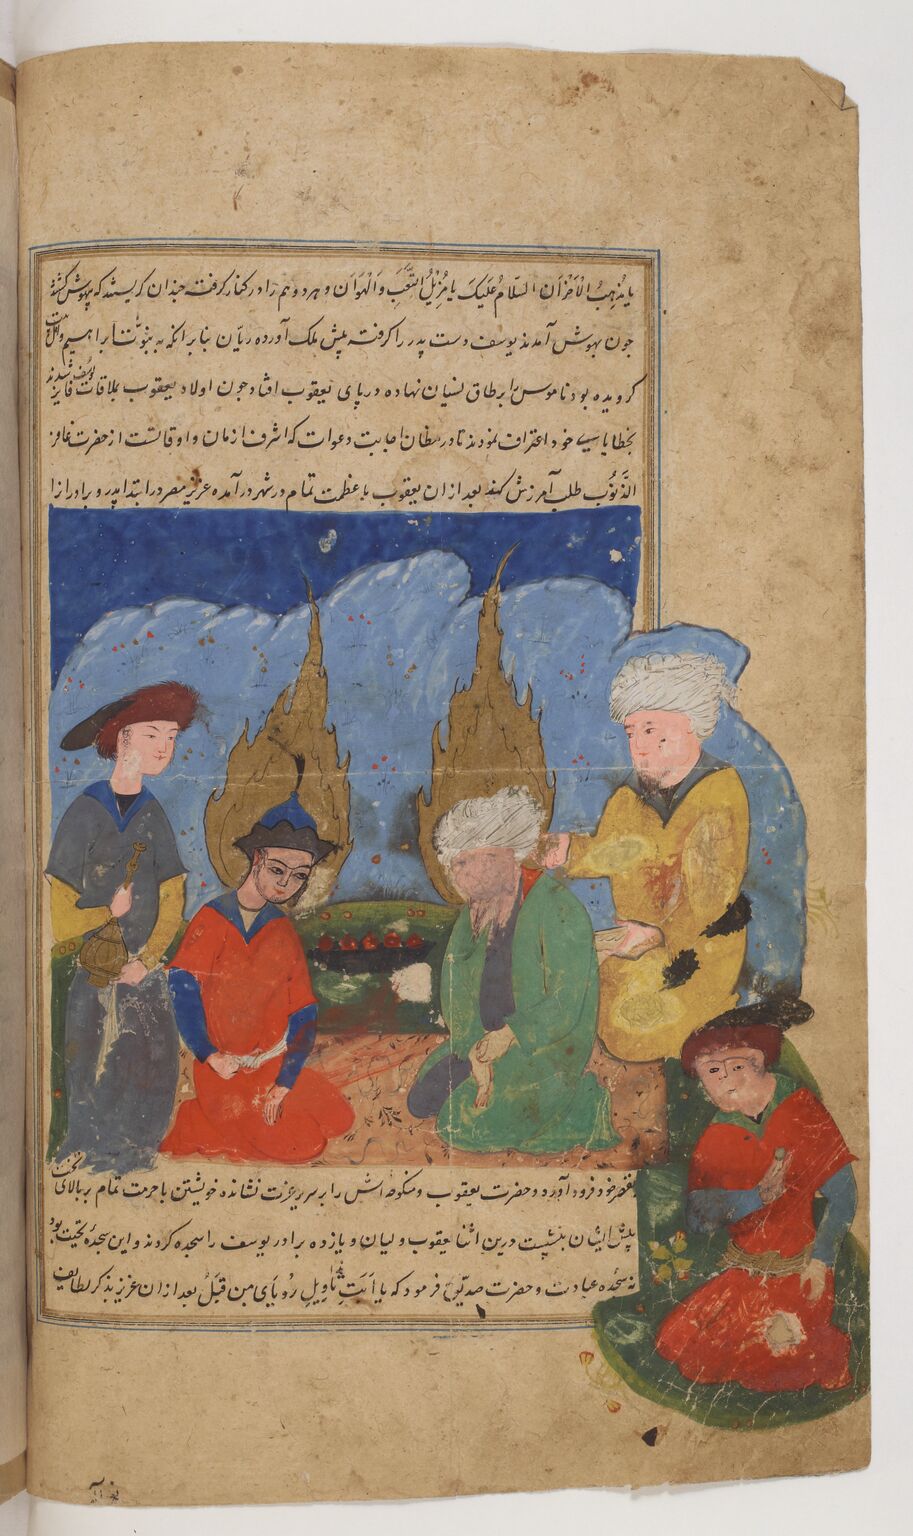 یا مُذهِبُ الاَحزان السّلامُ عَلَیکَ یا مُزِیلُ التَّعَبِ وَ الهَوان و هر دو هم را در کنار گرفته چندان گریستند که بیهوش گشتند
چون بهوش آمدند یوسف دست پدر را گرفته پیش ملک آورده ریّان بنابر آنکه به نبوّت ابراهیم
کرویده بود ناموس را بر طاق نسیان نهاده در پای یعقوب افتاد چون اولاد یعقوب بملاقات یوسف فایز شدند
بخطایا خود اعتراف نمودند تا در مظان اجابت دعوات که اشرف ازمان و اوقاتست از حضرت غافر
الذّنوب طلب آمرزش کند بعد از ان یعقوب با عظمت تمام در شهر در آمده عزیز مصر در ابتدا پدر و برادرانرا
بقصر خود فرود آورد و حضرت یعقوب و منکوحه اش را بر سریر عزت نشانده خویشتن با حرمت تمام بر بالای تخت
پیش ایشان بنشست درین اثنا یعقوب و لیان و یازده برادر یوسف را سجده کردند و این سجدهٔ تحیت بود
نه سجدهٔ عبادت و حضرت صدیق فرمود که یا اَبَتِ تاویلِ رُویای من قَبلُ بعد از ان عزیز بذکر لطایف